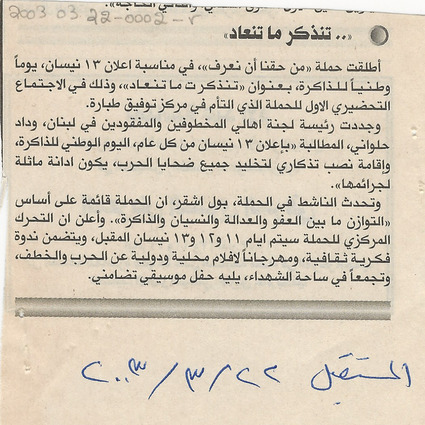 2003 03 22-0002-r
«.. تنذكر ما تنعاد»
أطلقت حملة «من حقنا أن نعرف»، في مناسبة اعلان ١٣ نيسان، يوماً
وطنياً للذاكرة، بعنوان «تنذكرت ما تنعاد»، وذلك في الاجتماع
التحضيري الاول للحملة الذي التأم في مركز توفيق طبارة.
وجددت رئيسة لجنة اهالي المخطوفين والمفقودين في لبنان، وداد
حلواني، المطالبة «بإعلان ١٣ نيسان من كل عام، اليوم الوطني للذاكرة،
وإقامة نصب تذكاري لتخليد جميع ضحايا الحرب، يكون ادانة ماثلة
لجرائمها».
وتحدث الناشط في الحملة، بول اشقر، ان الحملة قائمة على أساس
«التوازن ما بين العفو والعدالة والنسيان والذاكرة». وأعلن ان التحرك
المركزي للحملة سيتم ايام ١١ و١٢ و١٣ نيسان المقبل، ويتضمن ندوة
فكرية ثقافية، ومهرجاناً لافلام محلية ودولية عن الحرب والخطف،
وتجمعاً في ساحة الشهداء، يليه حفل موسيقي تضامني.
المستقبل ٢٢/٣/٢٠٠٣